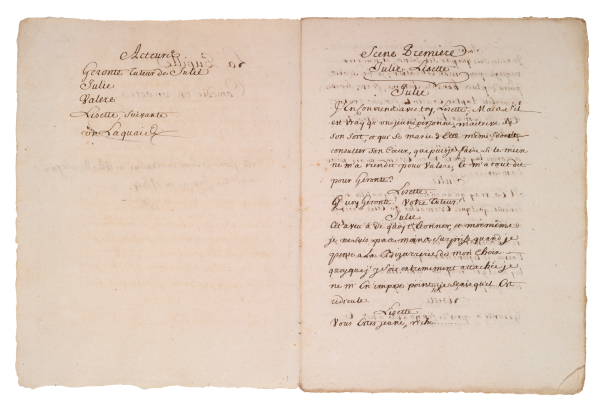 Acteurs
Geronte tuteur de Julie
Julie
Valere
Lisette, Suivante
un Laquais
Scene Premiere
Julie, Lisette
Julie
J'En Conviens avec toy Lisette, Mais S'il
est vray qu'un jeune personne, maitresse de
son Sort, et qui se marie d'Elle même doive
consulter son Cœur, que puis-je faire si le mien
ne m'a rien dit pour Valere, et m'a tout dit
pour Geronte?
Lisette
Quoy Geronte! Votre tuteur!
Julie
Cet aveu a de quoy t'Etonner, et moi même
je ne suis pas moins surprise quand je
pense a la Bizarrerie de mon choix
quoyque j'y sois extremement attachée je
ne m'En impose point, je sçais qu'il Est
ridicule
Lisette
Vous êtes jeune, riche